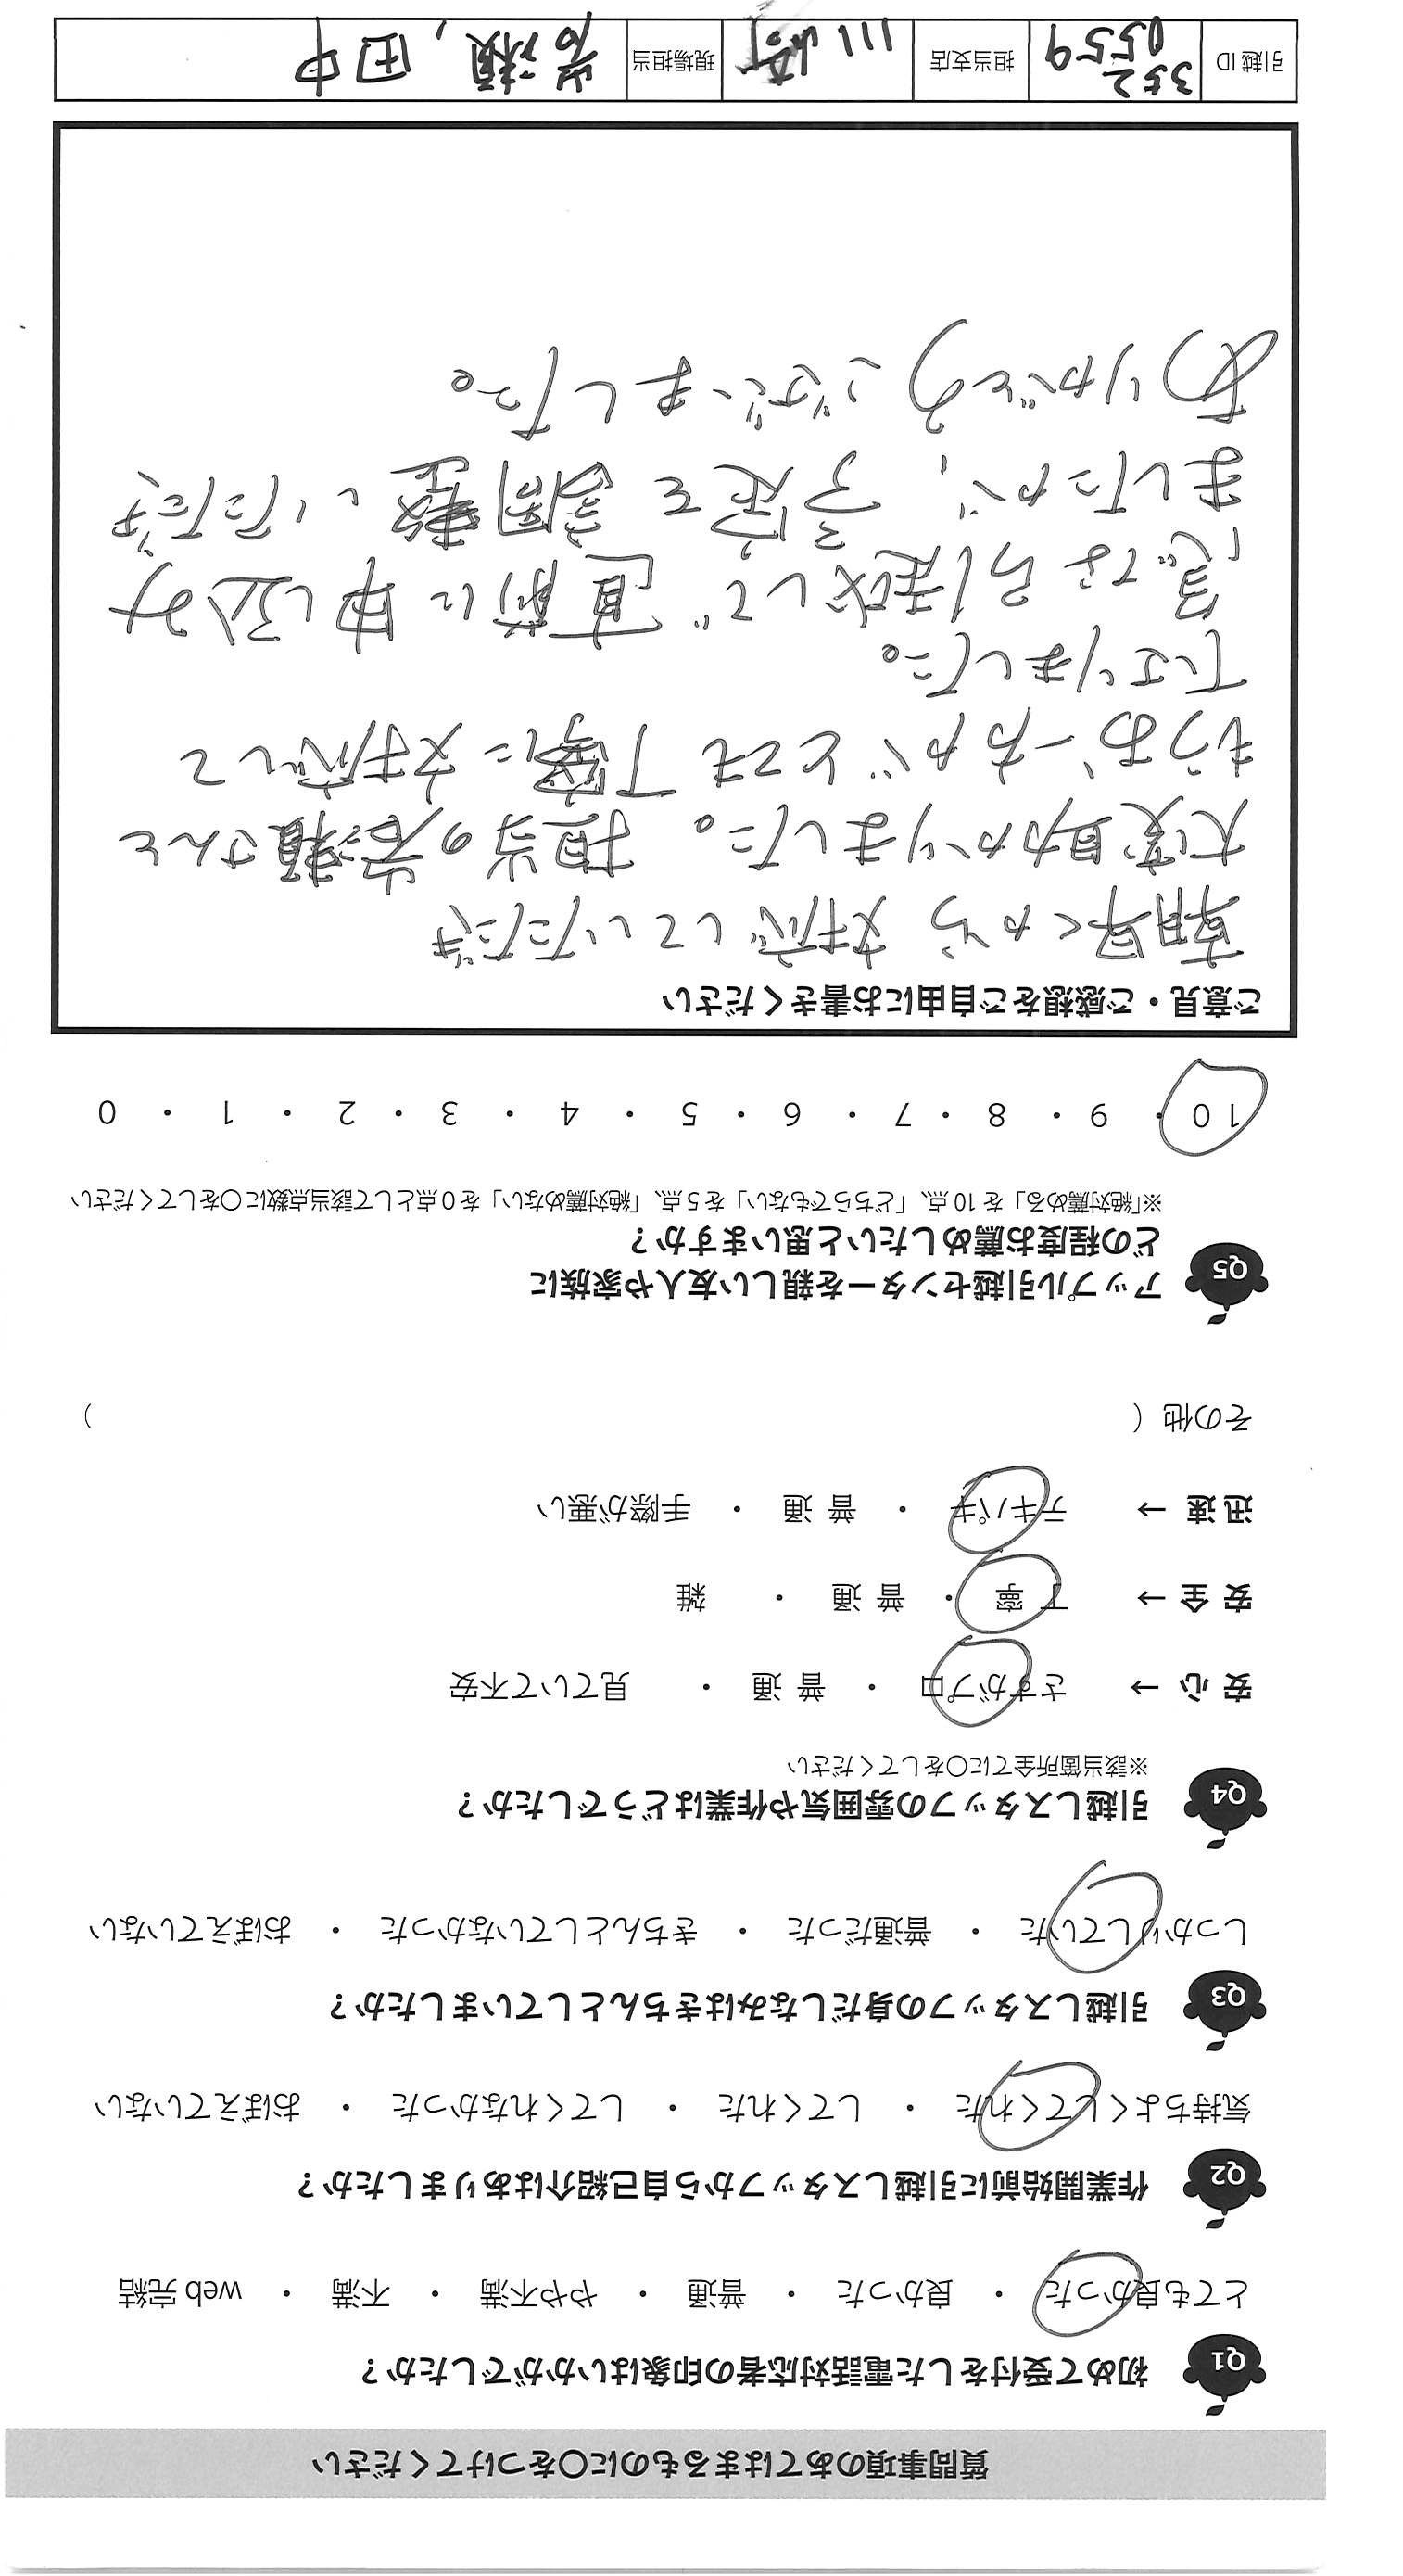 質問事項のあてはまるものに〇をつけてください
Q1 初めて受付をした電話対応者の印象はいかがでしたか？
とても良かった ・ 良かった ・ 普通 ・ やや不満 ・ 不満 ・ web 完結
Q2 作業開始前に引越しスタッフから自己紹介はありましたか？
気持ちよくしてくれた ・ してくれた ・ してくれなかった ・ おぼえていない
Q3 引越しスタッフの身だしなみはきちんとしていましたか？
しっかりしていた ・ 普通だった ・ きちんとしていなかった ・ おぼえていない
Q4 引越しスタッフの雰囲気や作業はどうでしたか？
※該当箇所全てに〇をしてください
安 心 → さすがプロ ・ 普 通 ・ 見ていて不安
安 全 → 丁 寧 ・ 普 通 ・ 雑
迅 速 → テキパキ ・ 普 通 ・ 手際が悪い
その他（ ）
Q5 アップル引越センターを親しい友人や家族に
どの程度お薦めしたいと思いますか？
※「絶対薦める」を 10 点、「どちらでもない」を 5 点、「絶対薦めない」を 0 点として該当点数に〇をしてください
10 ・ 9 ・ 8 ・ 7 ・ 6 ・ 5 ・ 4 ・ 3 ・ 2 ・ 1 ・ 0
ご意見・ご感想をご自由にお書きください
朝早くから 対応していただき
大変助かりました。担当の岩瀬さんと
もうお一方がとても丁寧に対応して
下さりました。
急な引越しで直前に申し込み
ましたが、予定を調整いただき
ありがとうございました。
引越 ID 352 0559 担当支店 川崎 現場担当 岩瀬, 田中